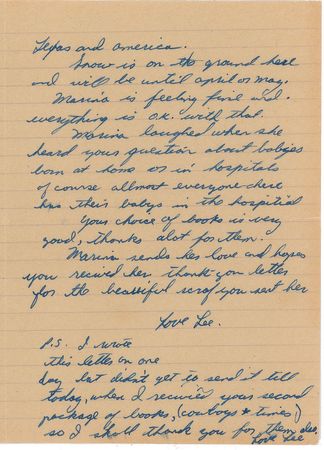 Texas and america.
Snow is on the ground here
and will be until april or may.
Marina is feeling fine and
everything is o.k. with that.
Marina laughed when she
heard your question about babyes
born at home or in hospitals
of course allmost everyone here
has their babys in the hospitial
Your choice of books is very
good, thanks alot for them.
Marina sends her love and hopes
you recived her thank-you letter
for the beautiful scraf you sent her
Love Lee.
P.S. I wrote
this letter on one
day but didn't get to send it till
today, when I recived your second
package of books, (cowboys & times)
so I shall thank you for them also,
Love Lee